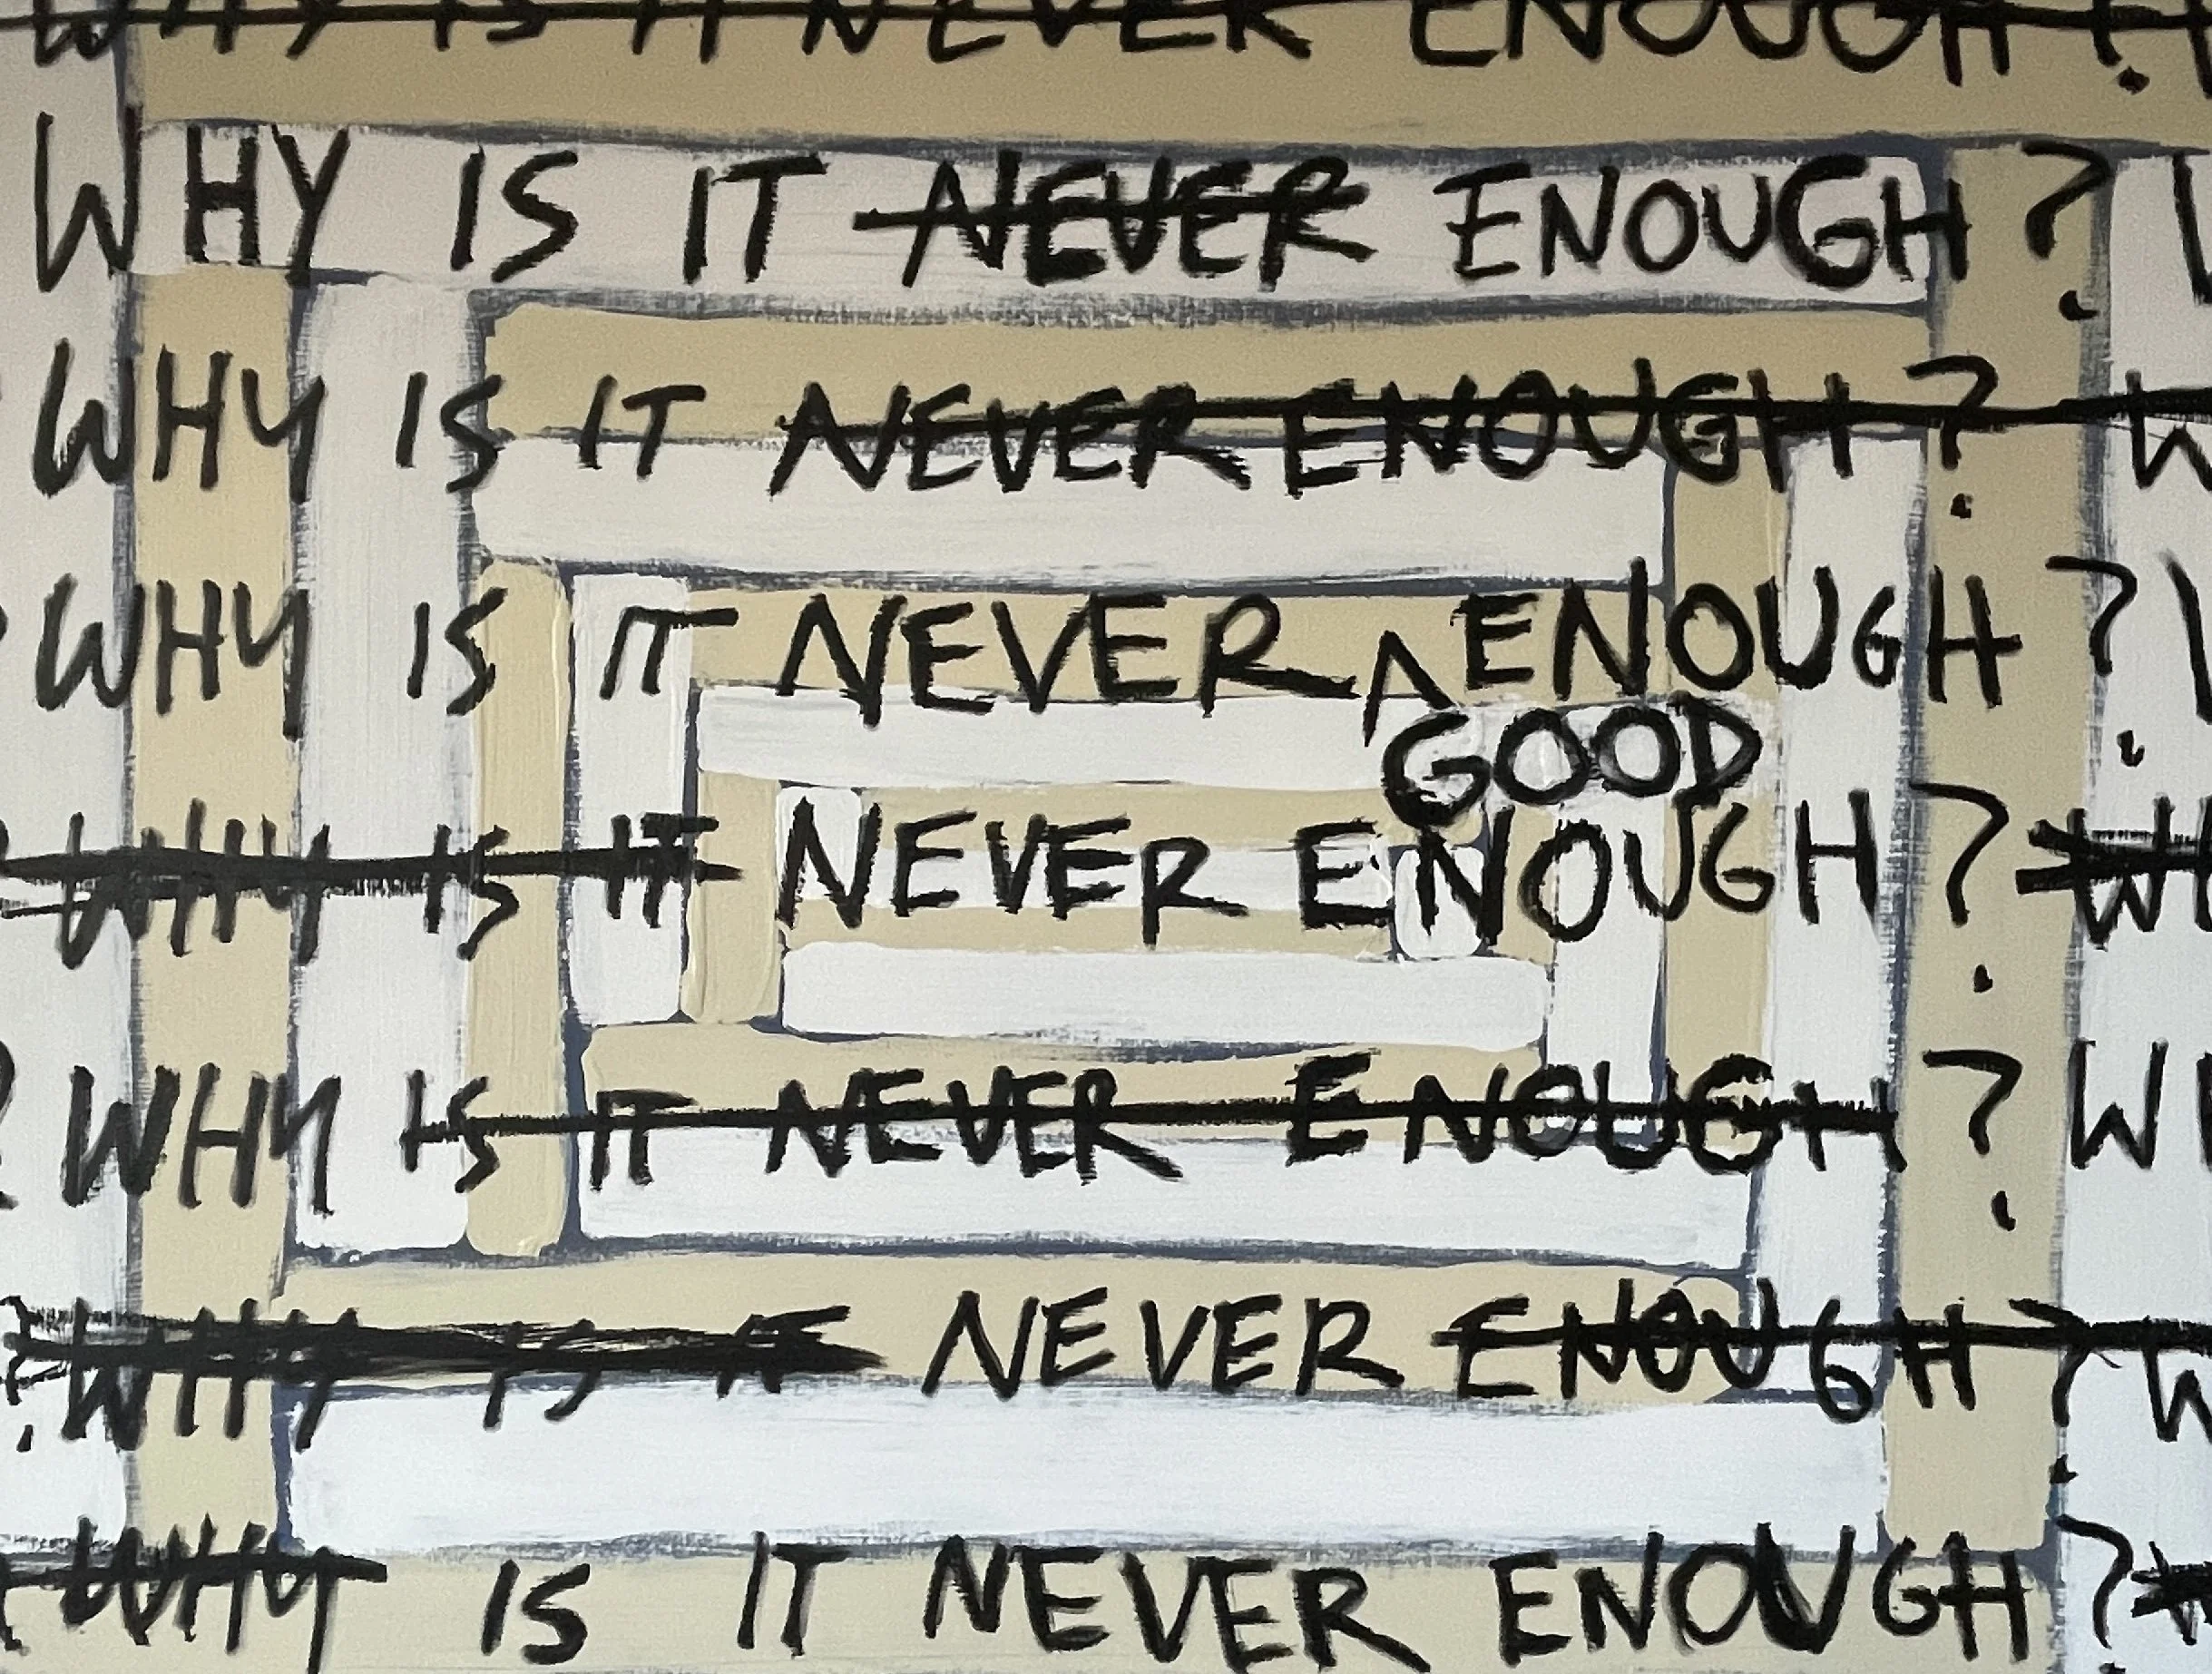 WHY IS IT NEVER ENOUGH?
WHY IS IT NEVER ENOUGH?
WHY IS IT NEVER ENOUGH? W
WHY IS IT NEVER ENOUGH?
GOOD
WHY IS IT NEVER ENOUGH? WH
? WHY IS IT NEVER ENOUGH? WI
? WHY IS IT NEVER ENOUGH? W
WHY IS IT NEVER ENOUGH?